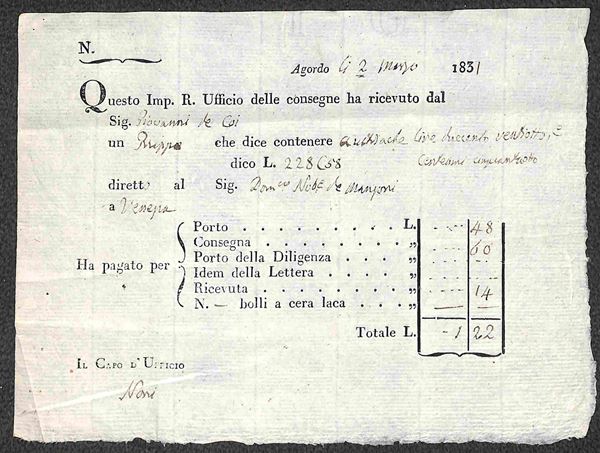 N.
Agordo li 2 Marzo 1831
Questo Imp. R. Ufficio delle consegne ha ricevuto dal
Sig. Giovanni de Coi
un Gruppo che dice contenere austriache Lire duecento ventotto, e
Centesimi cinquantotto
dico L. 228 C 58
diretto al Sig. Dom.co Nob.e de Manzoni
a Venezia
Ha pagato per
Porto . . . . . . . . . . L. 48
Consegna . . . . . . . . . „ 60
Porto della Diligenza . . . . „
Idem della Lettera . . . . „
Ricevuta . . . . . . . . . „ 14
N. — bolli a cera laca . . . „
Totale L. - 1 22
IL CAPO D'UFFICIO